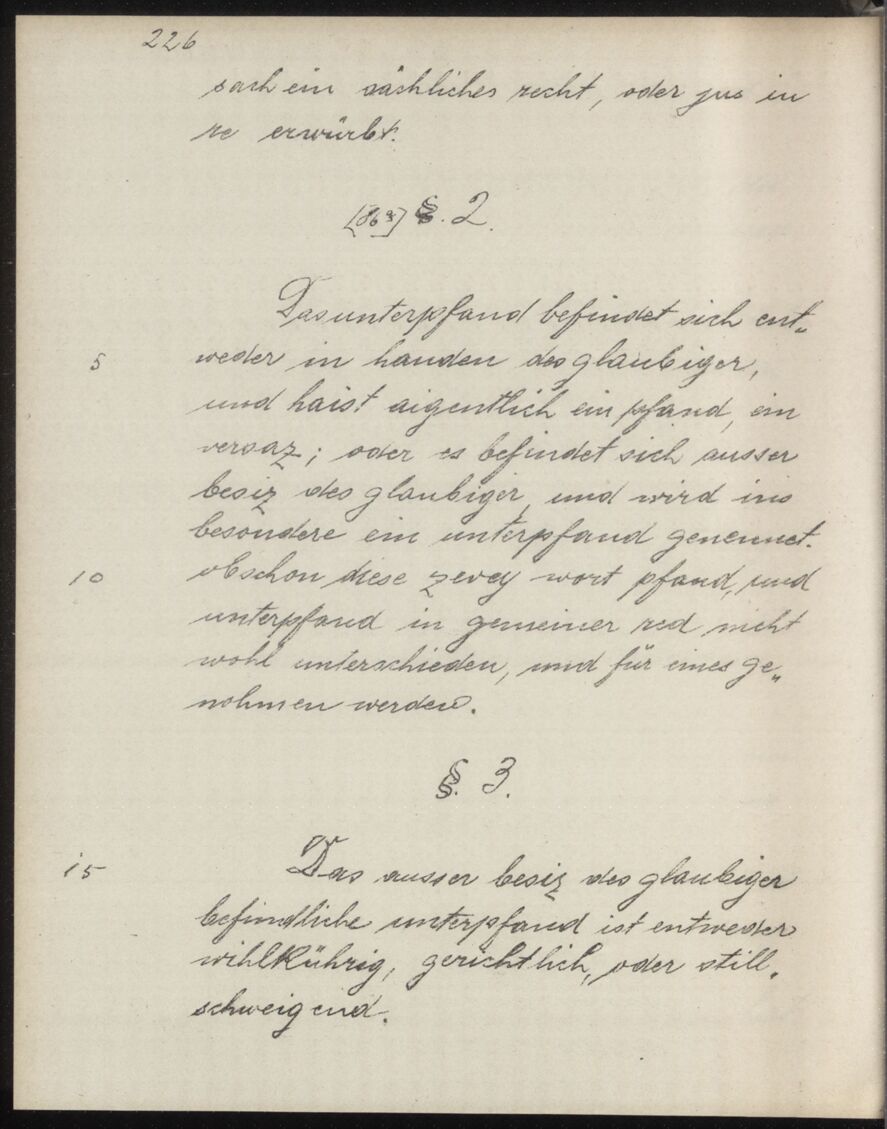 226
sach ein sächliches recht, oder jus in
re erwürbt.
§. 2.
Das unterpfand befindet sich ent„
5 weder in handen des glaubiger,
und haist aigentlich ein pfand, ein
versaz; oder es befindet sich ausser
besiz des glaubiger, und wird ins
besondere ein unterpfand genennet.
10 obschon diese zwey wort pfand, und
unterpfand in gemeiner red nicht
wohl unterschieden, und für eines ge„
nohmen werden.
§. 3.
15 Das ausser besiz des glaubiger
befindliche unterpfand ist entweder
wihlkührig, gerichtlich, oder still„
schweigend.